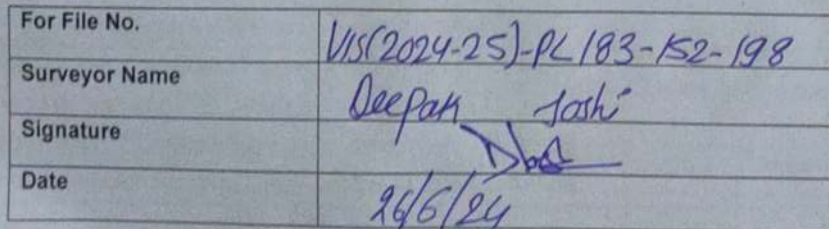 For File No. VIS(2024-25)-PL183-152-198
Surveyor Name Deepak Joshi
Signature
Date 26/6/24